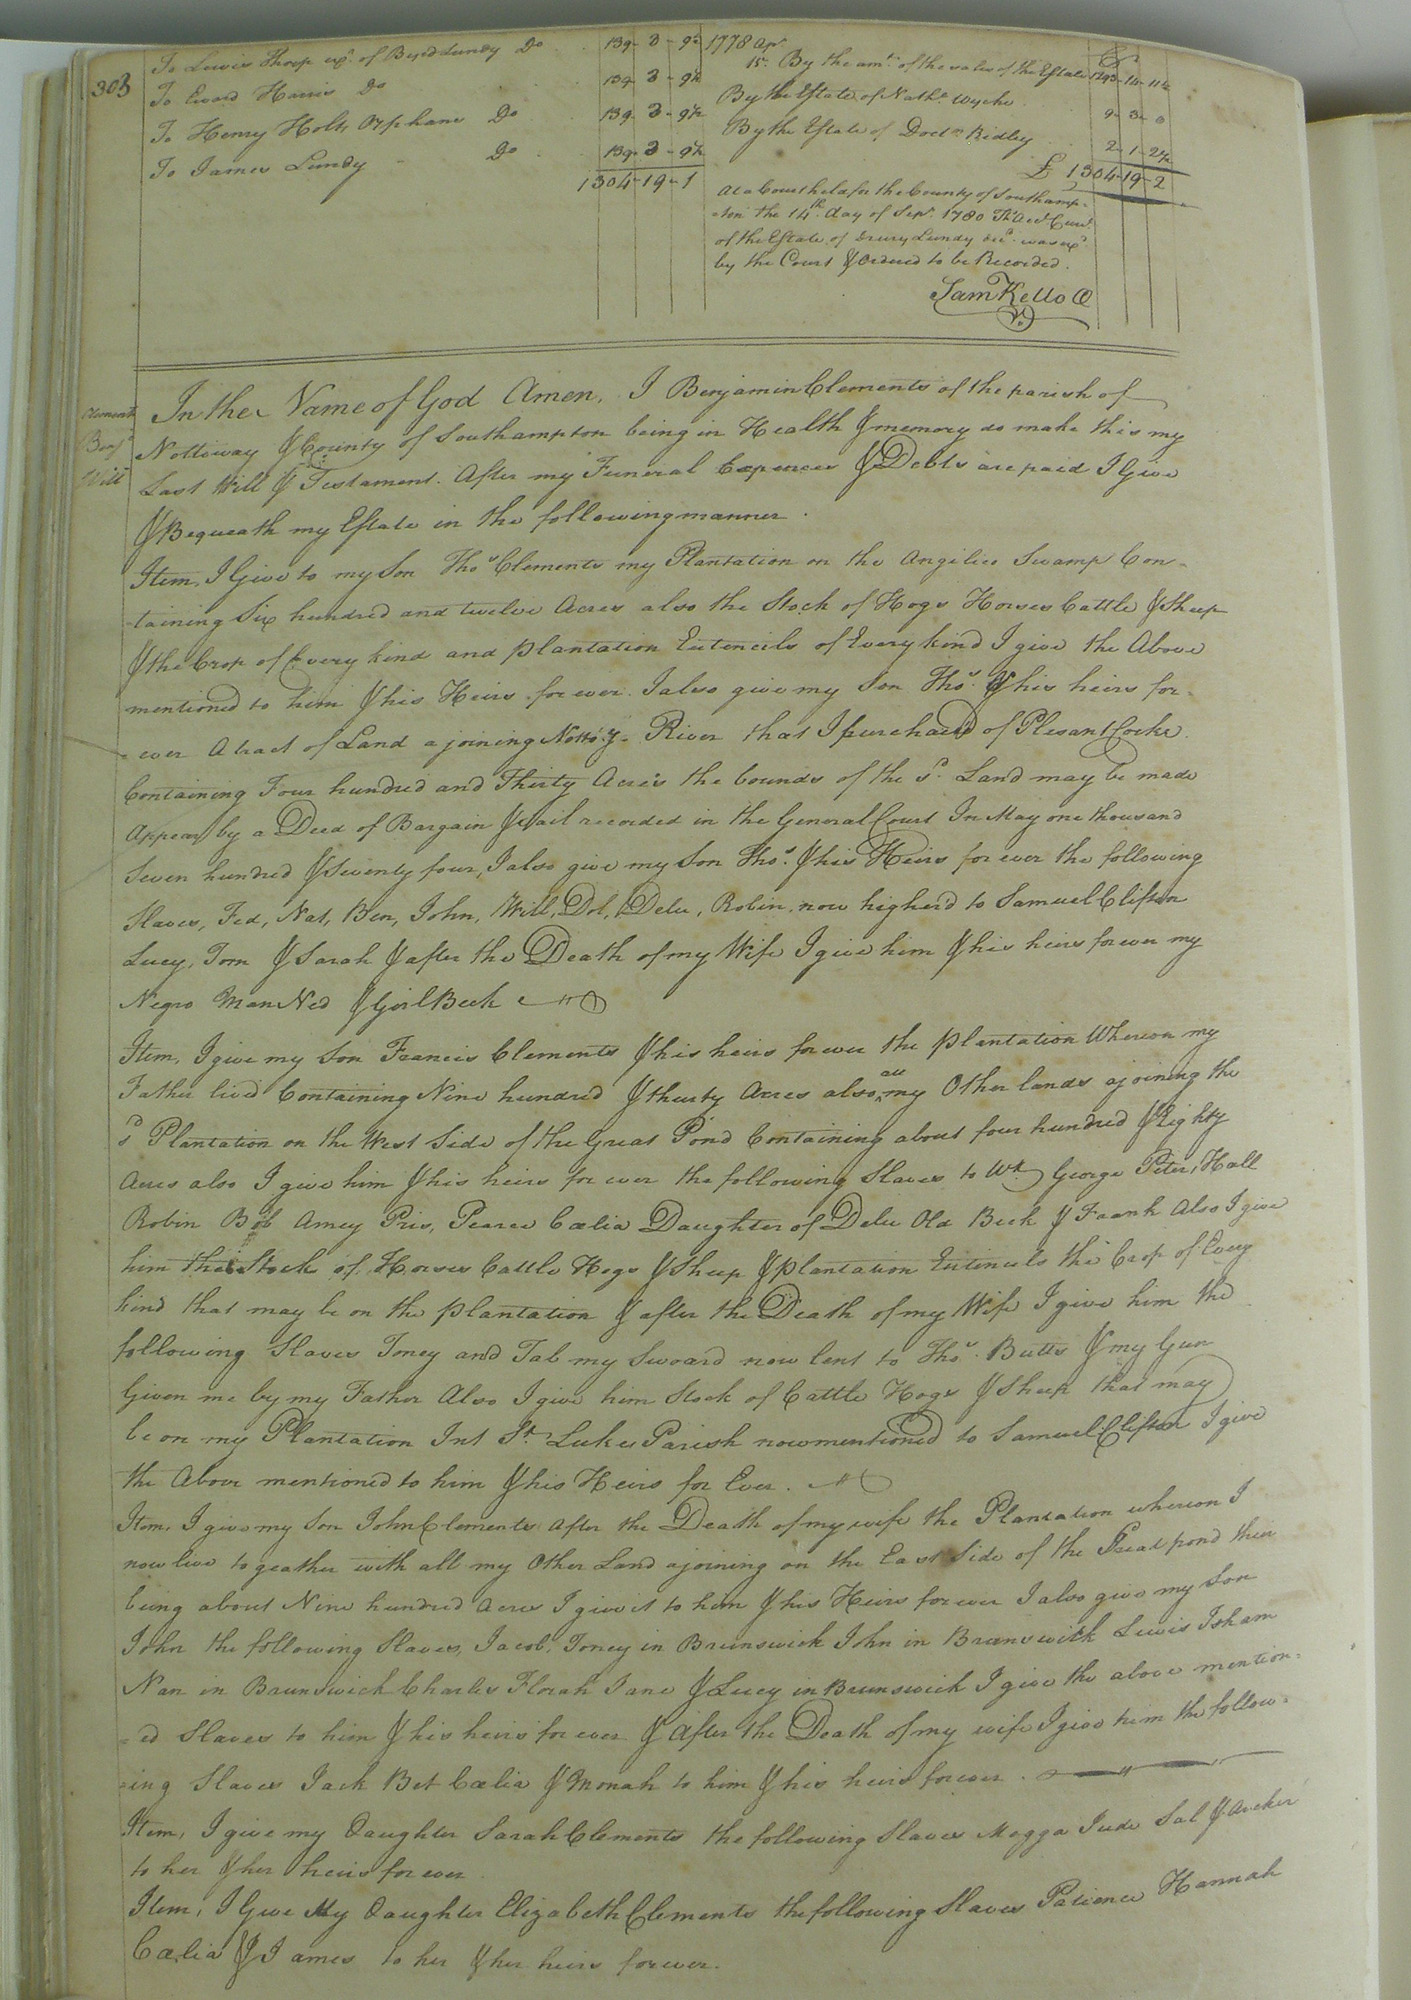 303
To Lewis Thorp exr. of Byrd Lundy Do 139 - 3 - 9½
To Edward Harris Do 139 - 3 - 9½
To Henry Holts Orphans Do 139 - 3 - 9½
To James Lundy - Do 139 - 3 - 9½
1304 - 19 - 1
1778 Apr. Cr
15 By the amt. of the sales of the Estate 1293 - 14 - 11½
By the Estate of Nathl. Wyche 9 - 3 - 0
By the Estate of Doctr. Ridley 2 - 1 - 2½
£ 1304 - 19 - 2
At a Court held for the County of Southamp-
-ton the 14th. day of Sepr. 1780 This Acct. Curr.
of the Estate of Drury Lundy decd. was exd.
by the Court & Ordered to be Recorded.
Sam Kello C
Clements
Benj.
Will
In the Name of God Amen. I Benjamin Clements of the parish of
Nottoway & County of Southampton being in Health & memory do make this my
Last Will & Testament. After my Funeral Expences & Debts are paid I Give
& Bequeath my Estate in the following manner.
Item, I Give to my Son Thos. Clements my Plantation on the Angilico Swamp Con-
-taining Six hundred and twelve Acres also the Stock of Hogs Horses Cattle & Sheep
& the Crop of Every kind and plantation Entencils of Every kind I give the Above
mentioned to him & his Heirs for ever. I also give my Son Thos. & his heirs for
-ever A tract of Land ajoining Notto.y. River that I purchased of Plesant Cocke
Containing Four hundred and Thirty Acres the bounds of the sd. Land may be made
Appear by a Deed of Bargain & Sail recorded in the General Court In May one thousand
Seven hundred & Seventy four, I also give my Son Thos. & his Heirs for ever the following
Slaves, Fed, Nat, Ben, John, Will, Dol, Dele, Robin, now higher'd to Samuel Clifton
Lucy, Tom & Sarah & after the Death of my Wife I give him & his heirs for ever my
Negro Man Ned & Girl Beck
Item, I give my Son Francis Clements & his heirs for ever the plantation Whereon my
Father lived Containing Nine hundred & thirty Acres also all my Other lands ajoining the
sd Plantation on the West Side of the Great Pond Containing about four hundred & Eighty
Acres also I give him & his heirs for ever the following Slaves to Wit George Peter, Hall
Robin Bob Amey Pris, Pearce Cælia Daughter of Dele Old Beck & Frank Also I give
him the Stock of Horses Cattle Hogs & Sheep & plantation Entincels the Crop of Every
kind that may be on the plantation & after the Death of my Wife I give him the
following Slaves Toney and Tab my Sword now lent to Thos. Butts & my Gun
Given me by my Father Also I give him Stock of Cattle Hogs & Sheep that may
be on my Plantation Int St. Lukes Parish now mentioned to Samuel Clifton I give
the Above mentioned to him & his Heirs for Ever.
Item, I give my Son John Clements after the Death of my wife the Plantation whereon I
now live to geather with all my Other Land ajoining on the East Side of the Great pond their
being about Nine hundred Acres I give it to him & his Heirs for ever I also give my Son
John the following Slaves, Jacob, Toney in Brunswick John in Brunswick Lewis Isham
Nan in Brunswick Charles Florah Jane & Lucy in Brunswick I give the above mention-
-ed Slaves to him & his heirs for ever & After the Death of my wife I give him the follow-
-ing Slaves Jack Bet Cælia & Monah to him & his heirs forever.
Item, I give my Daughter Sarah Clements the following Slaves Mogga Jude Sal &
to her & her heirs for ever
Item, I Give My Daughter Elizabeth Clements the following Slaves Patience Hannah
Cælia & James to her & her heirs forever.